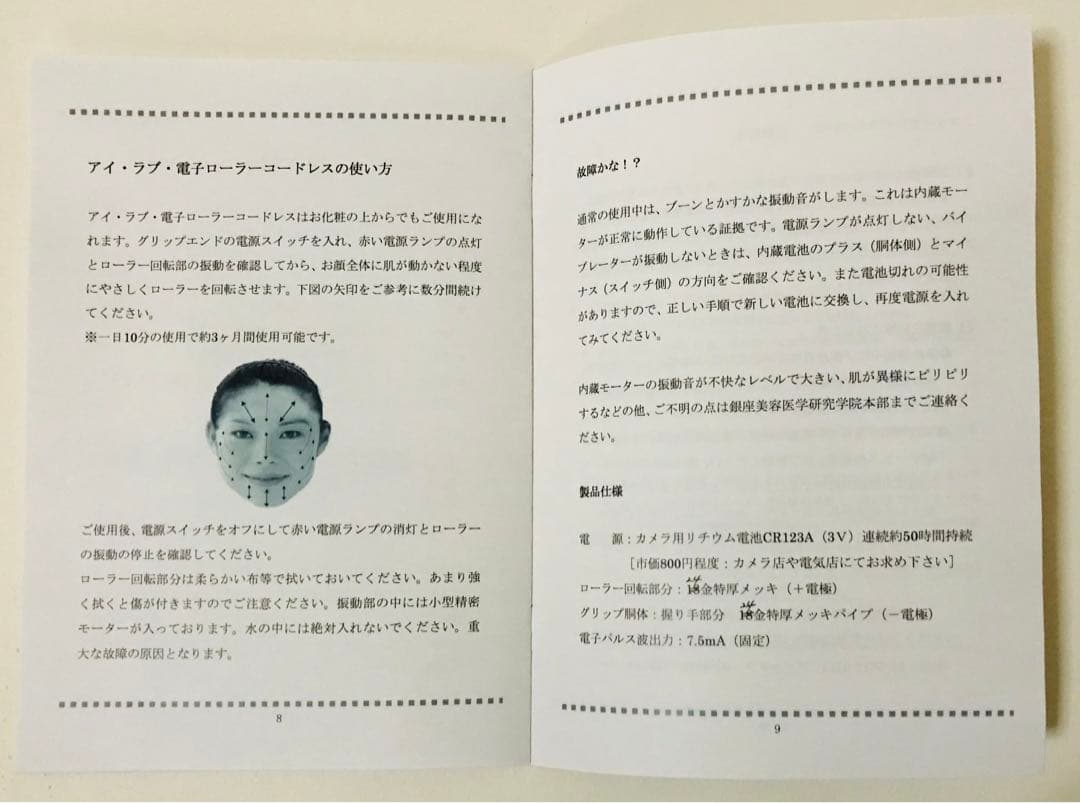 アイ・ラブ・電子ローラーコードレスの使い方
アイ・ラブ・電子ローラーコードレスはお化粧の上からでもご使用にな
れます。グリップエンドの電源スイッチを入れ、赤い電源ランプの点灯
とローラー回転部の振動を確認してから、お顔全体に肌が動かない程度
にやさしくローラーを回転させます。下図の矢印をご参考に数分間続け
てください。
※一日10分の使用で約3ヶ月間使用可能です。
ご使用後、電源スイッチをオフにして赤い電源ランプの消灯とローラー
の振動の停止を確認してください。
ローラー回転部分は柔らかい布等で拭いておいてください。あまり強
く拭くと傷が付きますのでご注意ください。振動部の中には小型精密
モーターが入っております。水の中には絶対入れないでください。重
大な故障の原因となります。
8
故障かな！？
通常の使用中は、ブーンとかすかな振動音がします。これは内蔵モー
ターが正常に動作している証拠です。電源ランプが点灯しない、バイ
ブレーターが振動しないときは、内蔵電池のプラス（胴体側）とマイ
ナス（スイッチ側）の方向をご確認ください。また電池切れの可能性
がありますので、正しい手順で新しい電池に交換し、再度電源を入れ
てみてください。
内蔵モーターの振動音が不快なレベルで大きい、肌が異様にピリピリ
するなどの他、ご不明の点は銀座美容医学研究学院本部までご連絡く
ださい。
製品仕様
電　源：カメラ用リチウム電池CR123A（3V）連続約50時間持続
［市価800円程度：カメラ店や電気店にてお求め下さい］
ローラー回転部分：18金特厚メッキ（＋電極）
グリップ胴体：握り手部分　18金特厚メッキパイプ（－電極）
電子パルス波出力：7.5mA（固定）
9